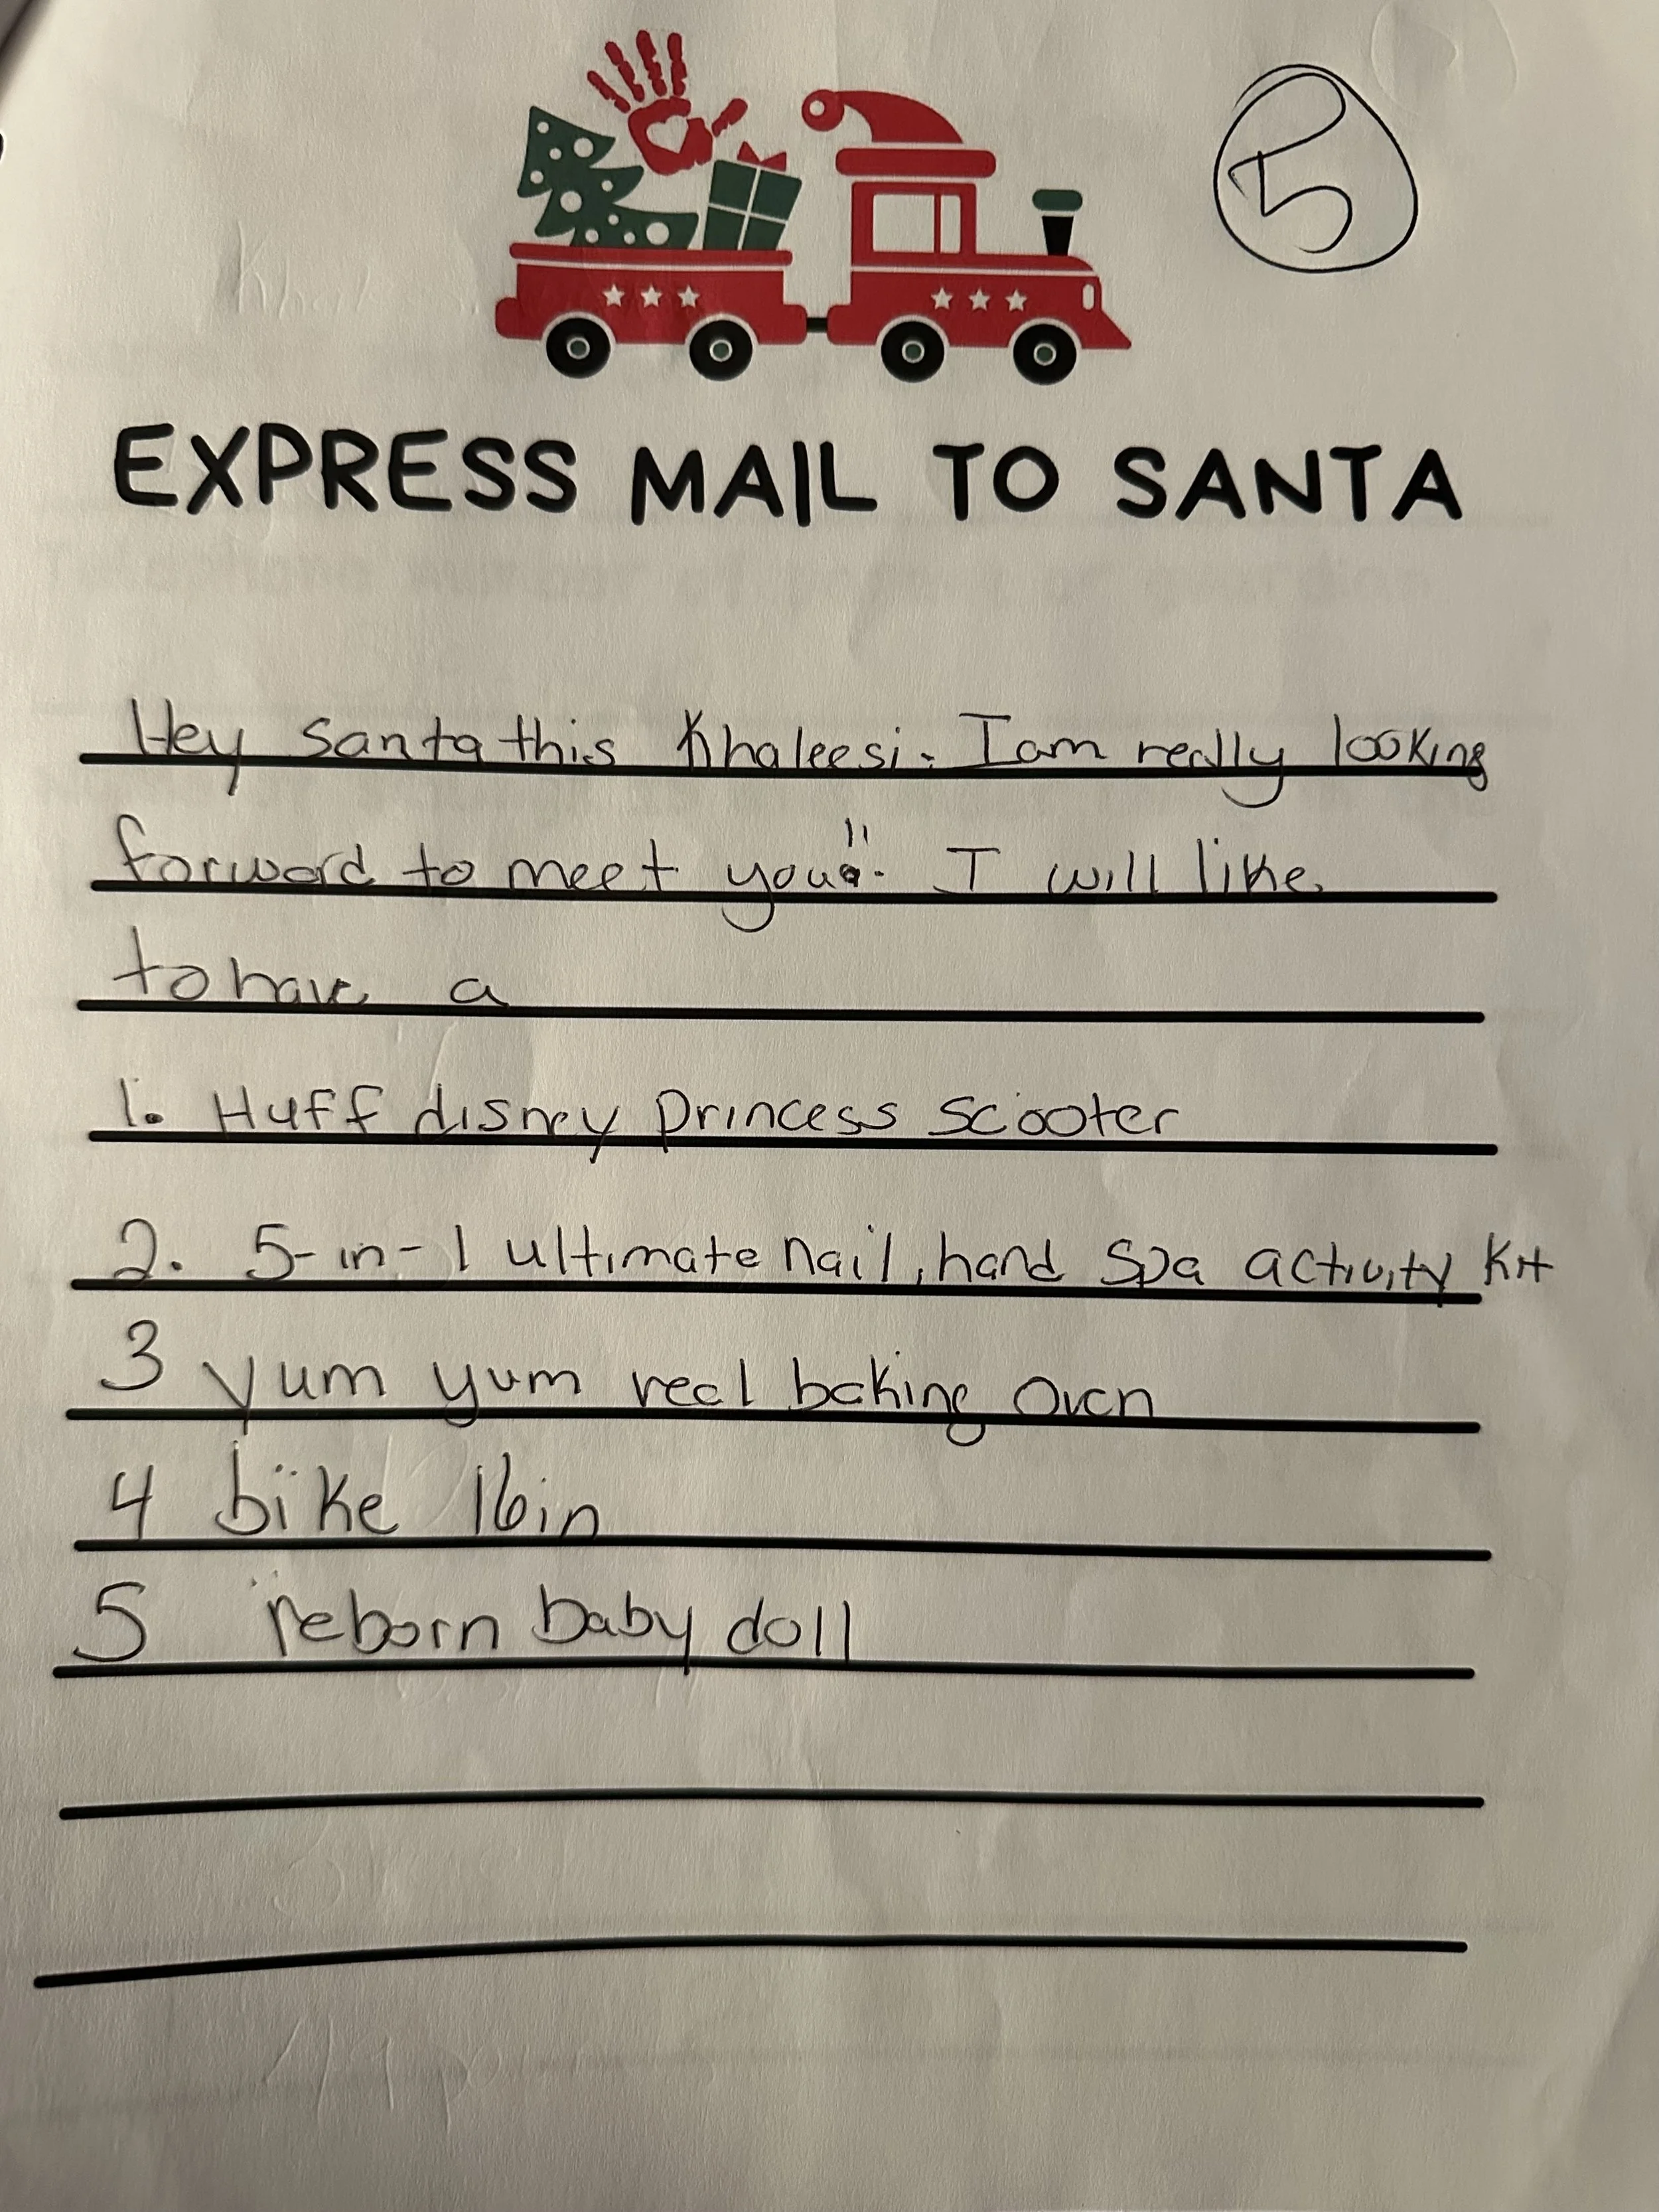 5
EXPRESS MAIL TO SANTA
Hey Santa this Khaleesi. I am really looking
forward to meet you!! I will like
to have a
1. Huff disney princess scooter
2. 5-in-1 ultimate nail, hand Spa activity Kit
3 yum yum real baking oven
4 bike 16in
5 reborn baby doll